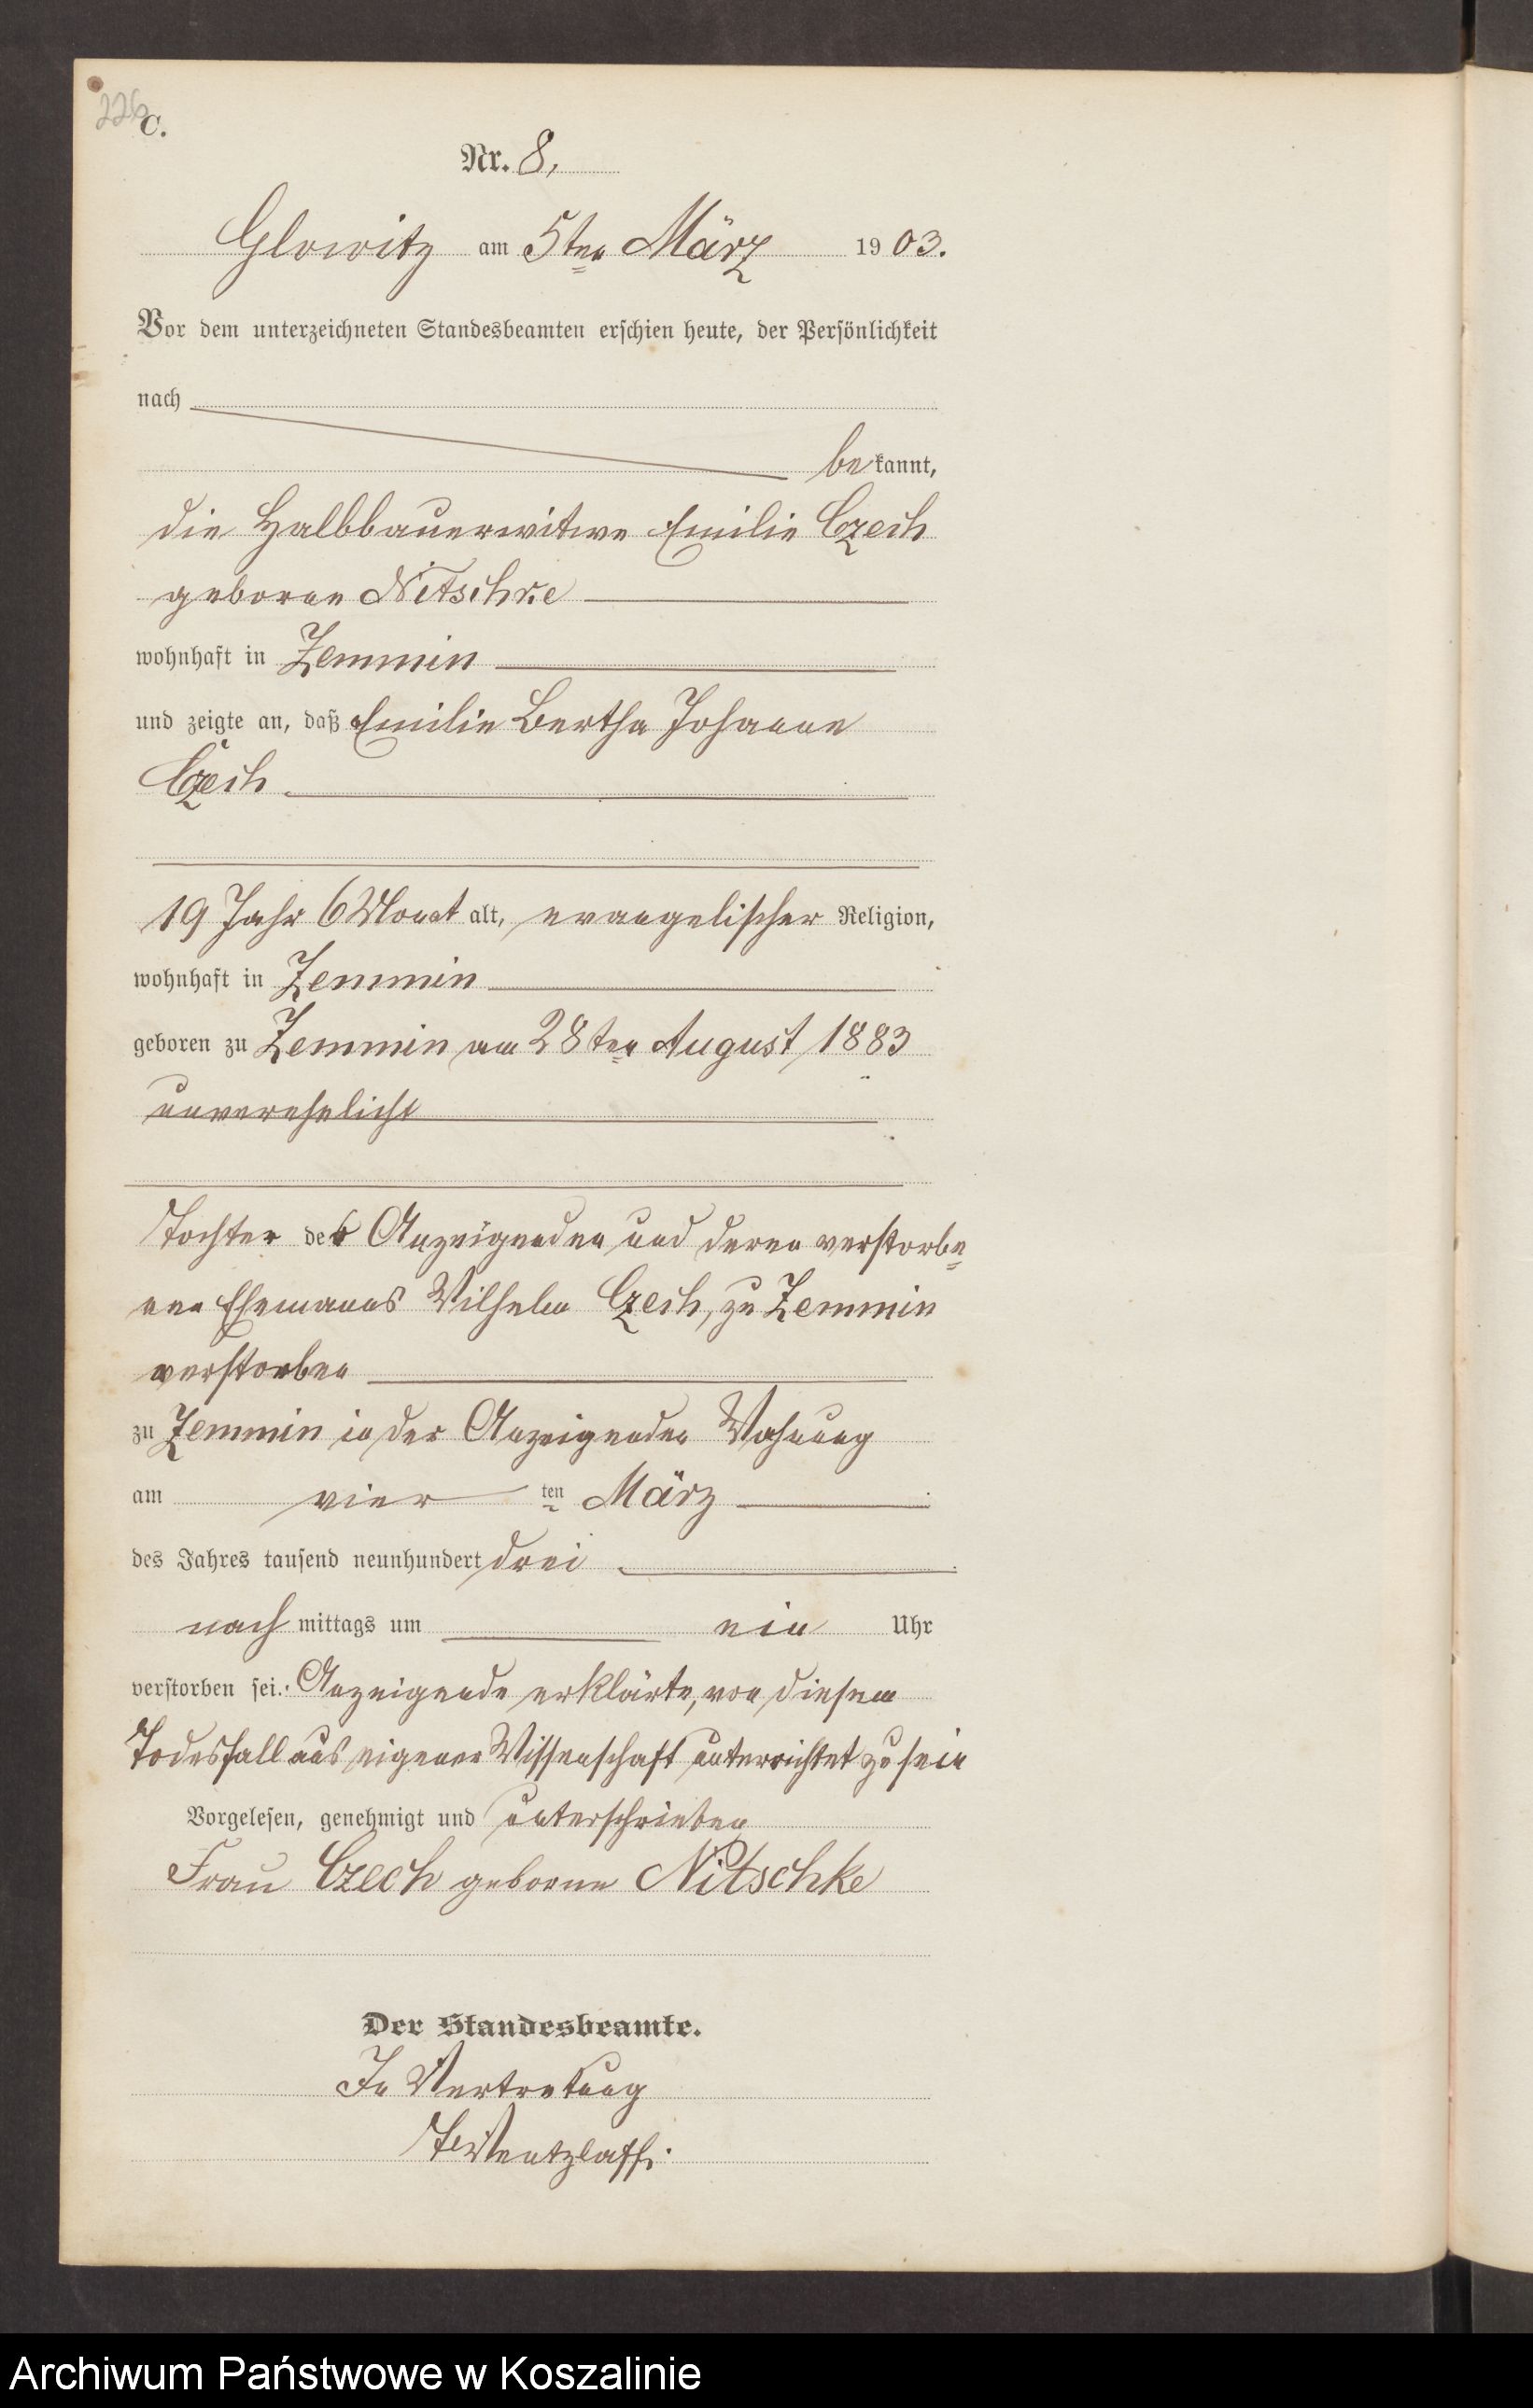 226
C.
Nr. 8,
Glowitz am 5ten März 1903.
Vor dem unterzeichneten Standesbeamten erschien heute, der Persönlichkeit
nach
bekannt,
die Halbbauerwitwe Emilie Czech
geborne Nitschke
wohnhaft in Zemmin
und zeigte an, daß Emilie Bertha Johanne
Czech
19 Jahr 6 Monat alt, evangelischer Religion,
wohnhaft in Zemmin
geboren zu Zemmin am 28ten August 1883
unverehelicht
Tochter der Anzeigenden und deren verstorbe=
nen Ehemanns Wilhelm Czech, zu Zemmin
verstorben
zu Zemmin in der Anzeigenden Wohnung
am vier ten März
des Jahres tausend neunhundert drei
nach mittags um ein Uhr
verstorben sei. Anzeigende erklärte, von diesem
Todesfall aus eigener Wissenschaft unterrichtet zu sein
Vorgelesen, genehmigt und unterschrieben
Frau Czech geborne Nitschke
Der Standesbeamte.
In Vertretung
Wentzlaff.
Archiwum Państwowe w Koszalinie